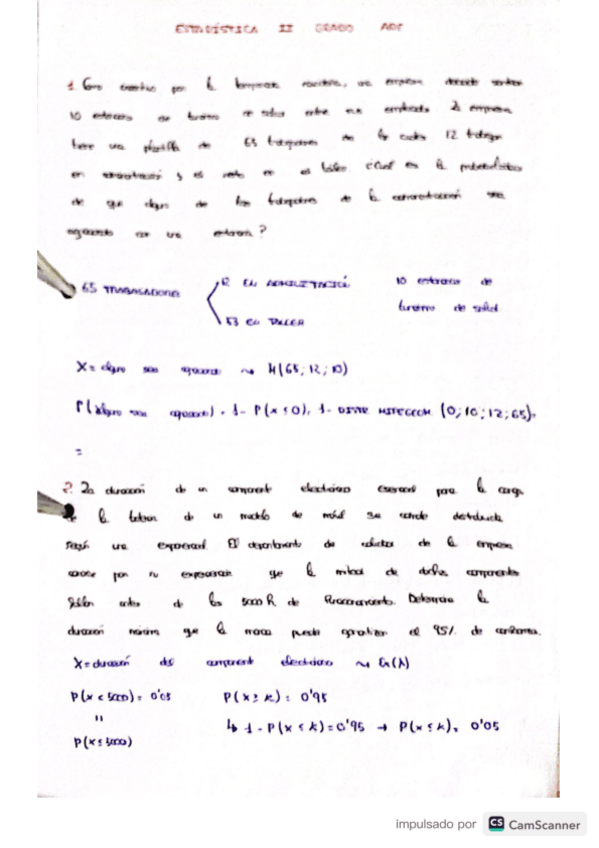 ESTADÍSTICA II GRADO ADE
1. Como incentivo por la temporada, una empresa decide sortear
10 estancias de turismo de salud entre sus empleados. La empresa
tiene una plantilla de 65 trabajadores de los cuales 12 trabajan
en administración y el resto en el taller. ¿Cuál es la probabilidad
de que alguno de los trabajadores de la administración sea
agraciado con una estancia?
65 TRABAJADORES 12 EN 10 estancias de
53 EN TALLER turismo de salud
X = alguno sea agraciado ~ H(65; 12; 10)
P(alguno sea agraciado) = 1 - P(x ≤ 0) = 1 - (0; 10; 12; 65) =
=
2. La duración de un componente electrónico esencial para la carga
de la batería de un modelo de móvil se distribuye
según una exponencial. El departamento de de la empresa
conoce por su experiencia que la mitad de dichos componentes
fallan antes de las 5000 h de funcionamiento. Determine la
duración que la marca puede garantizar al 95% de confianza.
X = duración del componente electrónico ~ (λ)
P(x < 5000) = 0'05 P(x ≥ k) = 0'95
"
P(x ≤ 5000) ↳ 1 - P(x ≤ k) = 0'95 → P(x ≤ k) = 0'05
impulsado por CS CamScanner